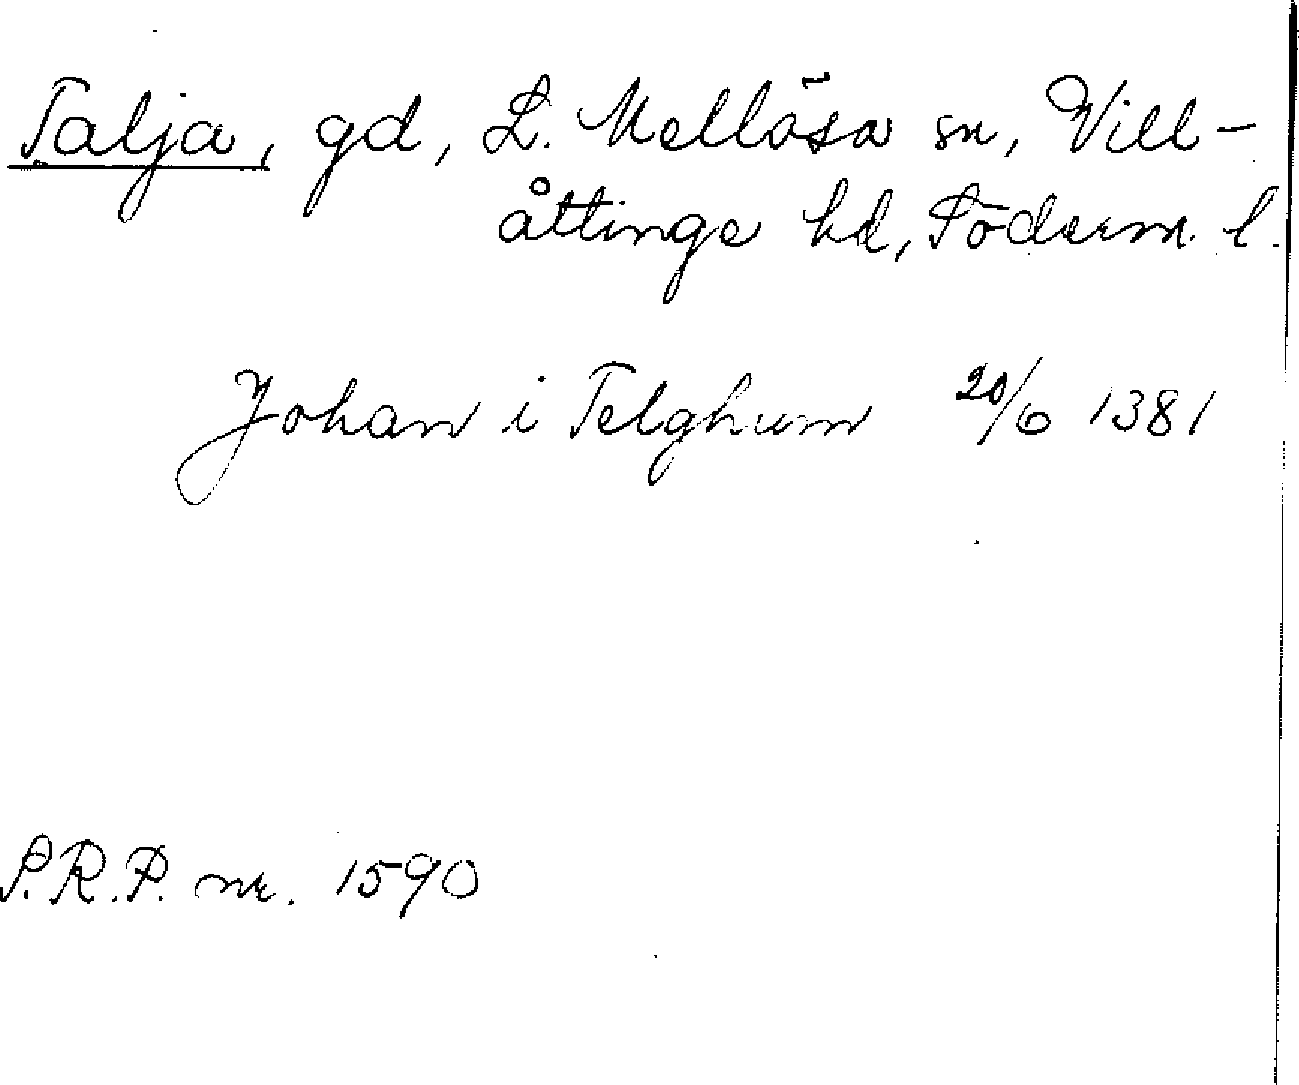 Talja, gd, L. Mellösa sn, Vill-
åttinge hd, Söderm. l.
Johan i Telghum 20/6 1381
S.R.P. nr. 1590